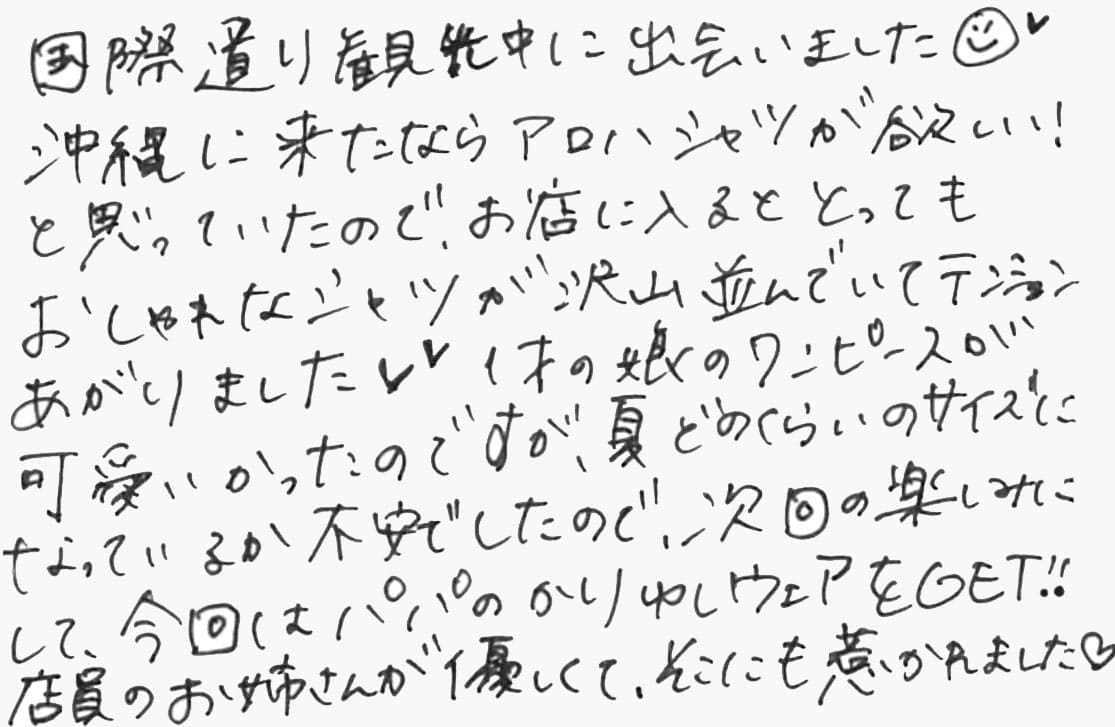 国際道り観光中に出会いました☺♥
沖縄に来たならアロハシャツが欲しい!
と思っていたので、お店に入るととっても
おしゃれなシャツが沢山並んでいてテンション
あがりました♥♥ 1才の娘のワンピースが
可愛いかったのですが、夏どのくらいのサイズに
なっているか不安でしたので、次回の楽しみに
して、今回はパパのかりゆしウェアをGET!!
店員のお姉さんが優しくて、そこにも惹かれました♡